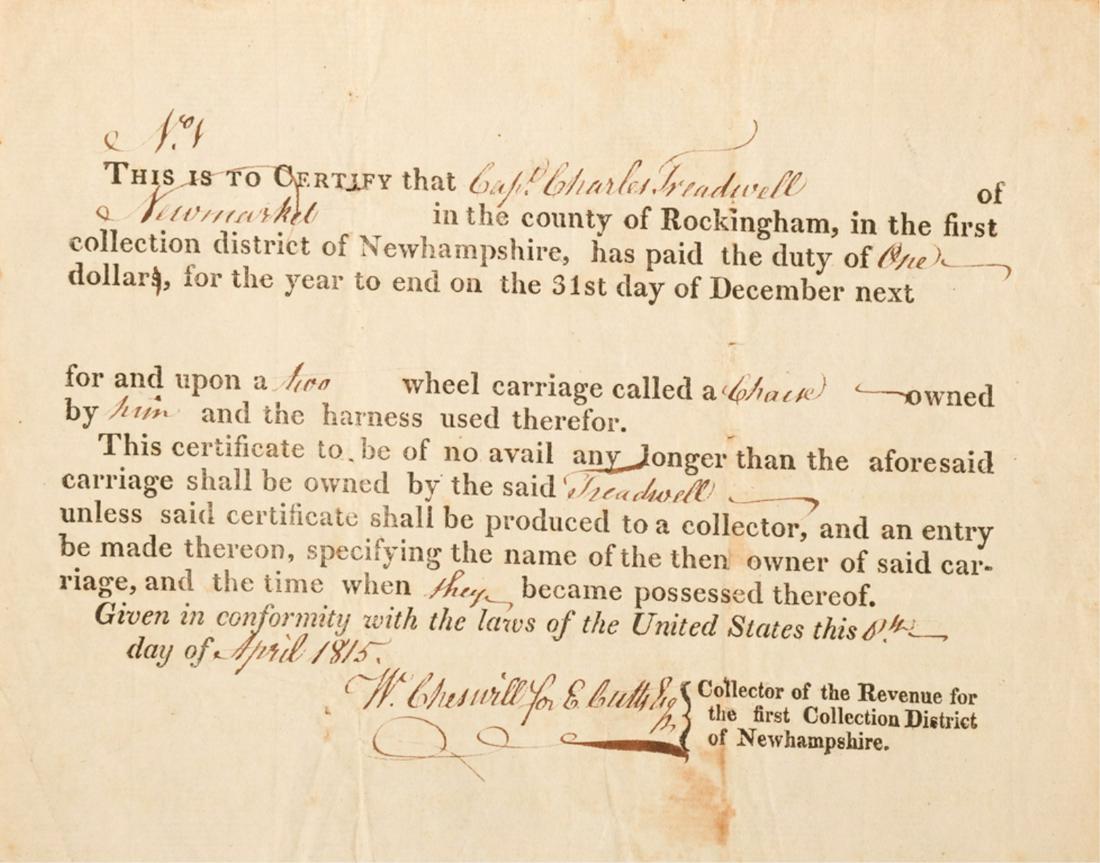 No. 1
THIS IS TO CERTIFY that Capt. Charles Treadwell of
Newmarket in the county of Rockingham, in the first
collection district of Newhampshire, has paid the duty of One
dollars, for the year to end on the 31st day of December next
for and upon a two wheel carriage called a Chaise owned
by him and the harness used therefor.
This certificate to be of no avail any longer than the aforesaid
carriage shall be owned by the said Treadwell
unless said certificate shall be produced to a collector, and an entry
be made thereon, specifying the name of the then owner of said car-
riage, and the time when they became possessed thereof.
Given in conformity with the laws of the United States this 8th
day of April 1815.
W. Cheswill for E. Cutts Esq
Collector of the Revenue for
the first Collection District
of Newhampshire.